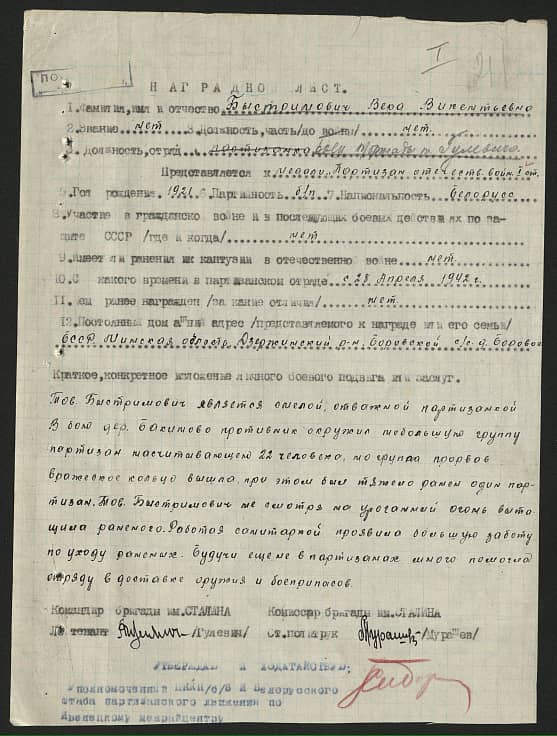 I
21
ПО
НАГРАДНОЙ ЛИСТ.
1.Фамилия,имя и отчество Быстримович Вера Викентьевна
2.Звание нет 3.Должность,часть/до войны/ нет.
3. Должность,отряд партизанка
Представляется к медали „Партизан отечеств. войн." I ст.
5.Год рождения 1921 6.Партийность б/п 7.Национальность белорусс.
8.Участие в гражданско войне и в последующих боевых действиях по за-
щите СССР /где и когда/ нет
9.Имеет ли ранения ик кантузии в отечественно войне нет.
10.С какого времени в партизанском отряде с 28 Апреля 1942 г.
11.Чем ранее награжден /за какие отличия/ нет.
12.Постоянный домашний адрес /представляемого к награде или его семьи/
БССР Минская область Дзержинский р-н. Боровской с/с д. Боровое
Краткое,конкретное изложенье личного боевого подвига или заслуг.
Тов. Быстримович является смелой, отважной партизанкой
В бою дер. Бакимово противник окружил небольшую группу
партизан насчитывающею 22 человека, но группа прорвав
вражеское кольцо вышла, при этом был тяжело ранен один пар-
тизан. Тов. Быстримович не смотря на ураганный огонь выта-
щила раненого. Работая санитаркой проявила большую заботу
по уходу раненых. Будучи еще не в партизанах много помогла
отряду в доставке оружия и боеприпасов.
Командир бригады им.СТАЛИНА Комиссар бригады им.СТАЛИНА
Лейтенант /Гулевич/ Ст.политрук /Мурашев/
УТВЕРЖДАЮ И ХОДАТАЙСТВУЮ:
Уполномоченный ЦК КП/б/Б и Белорусского
штаба партизанского движения по
Ивенецкому межрайцентру